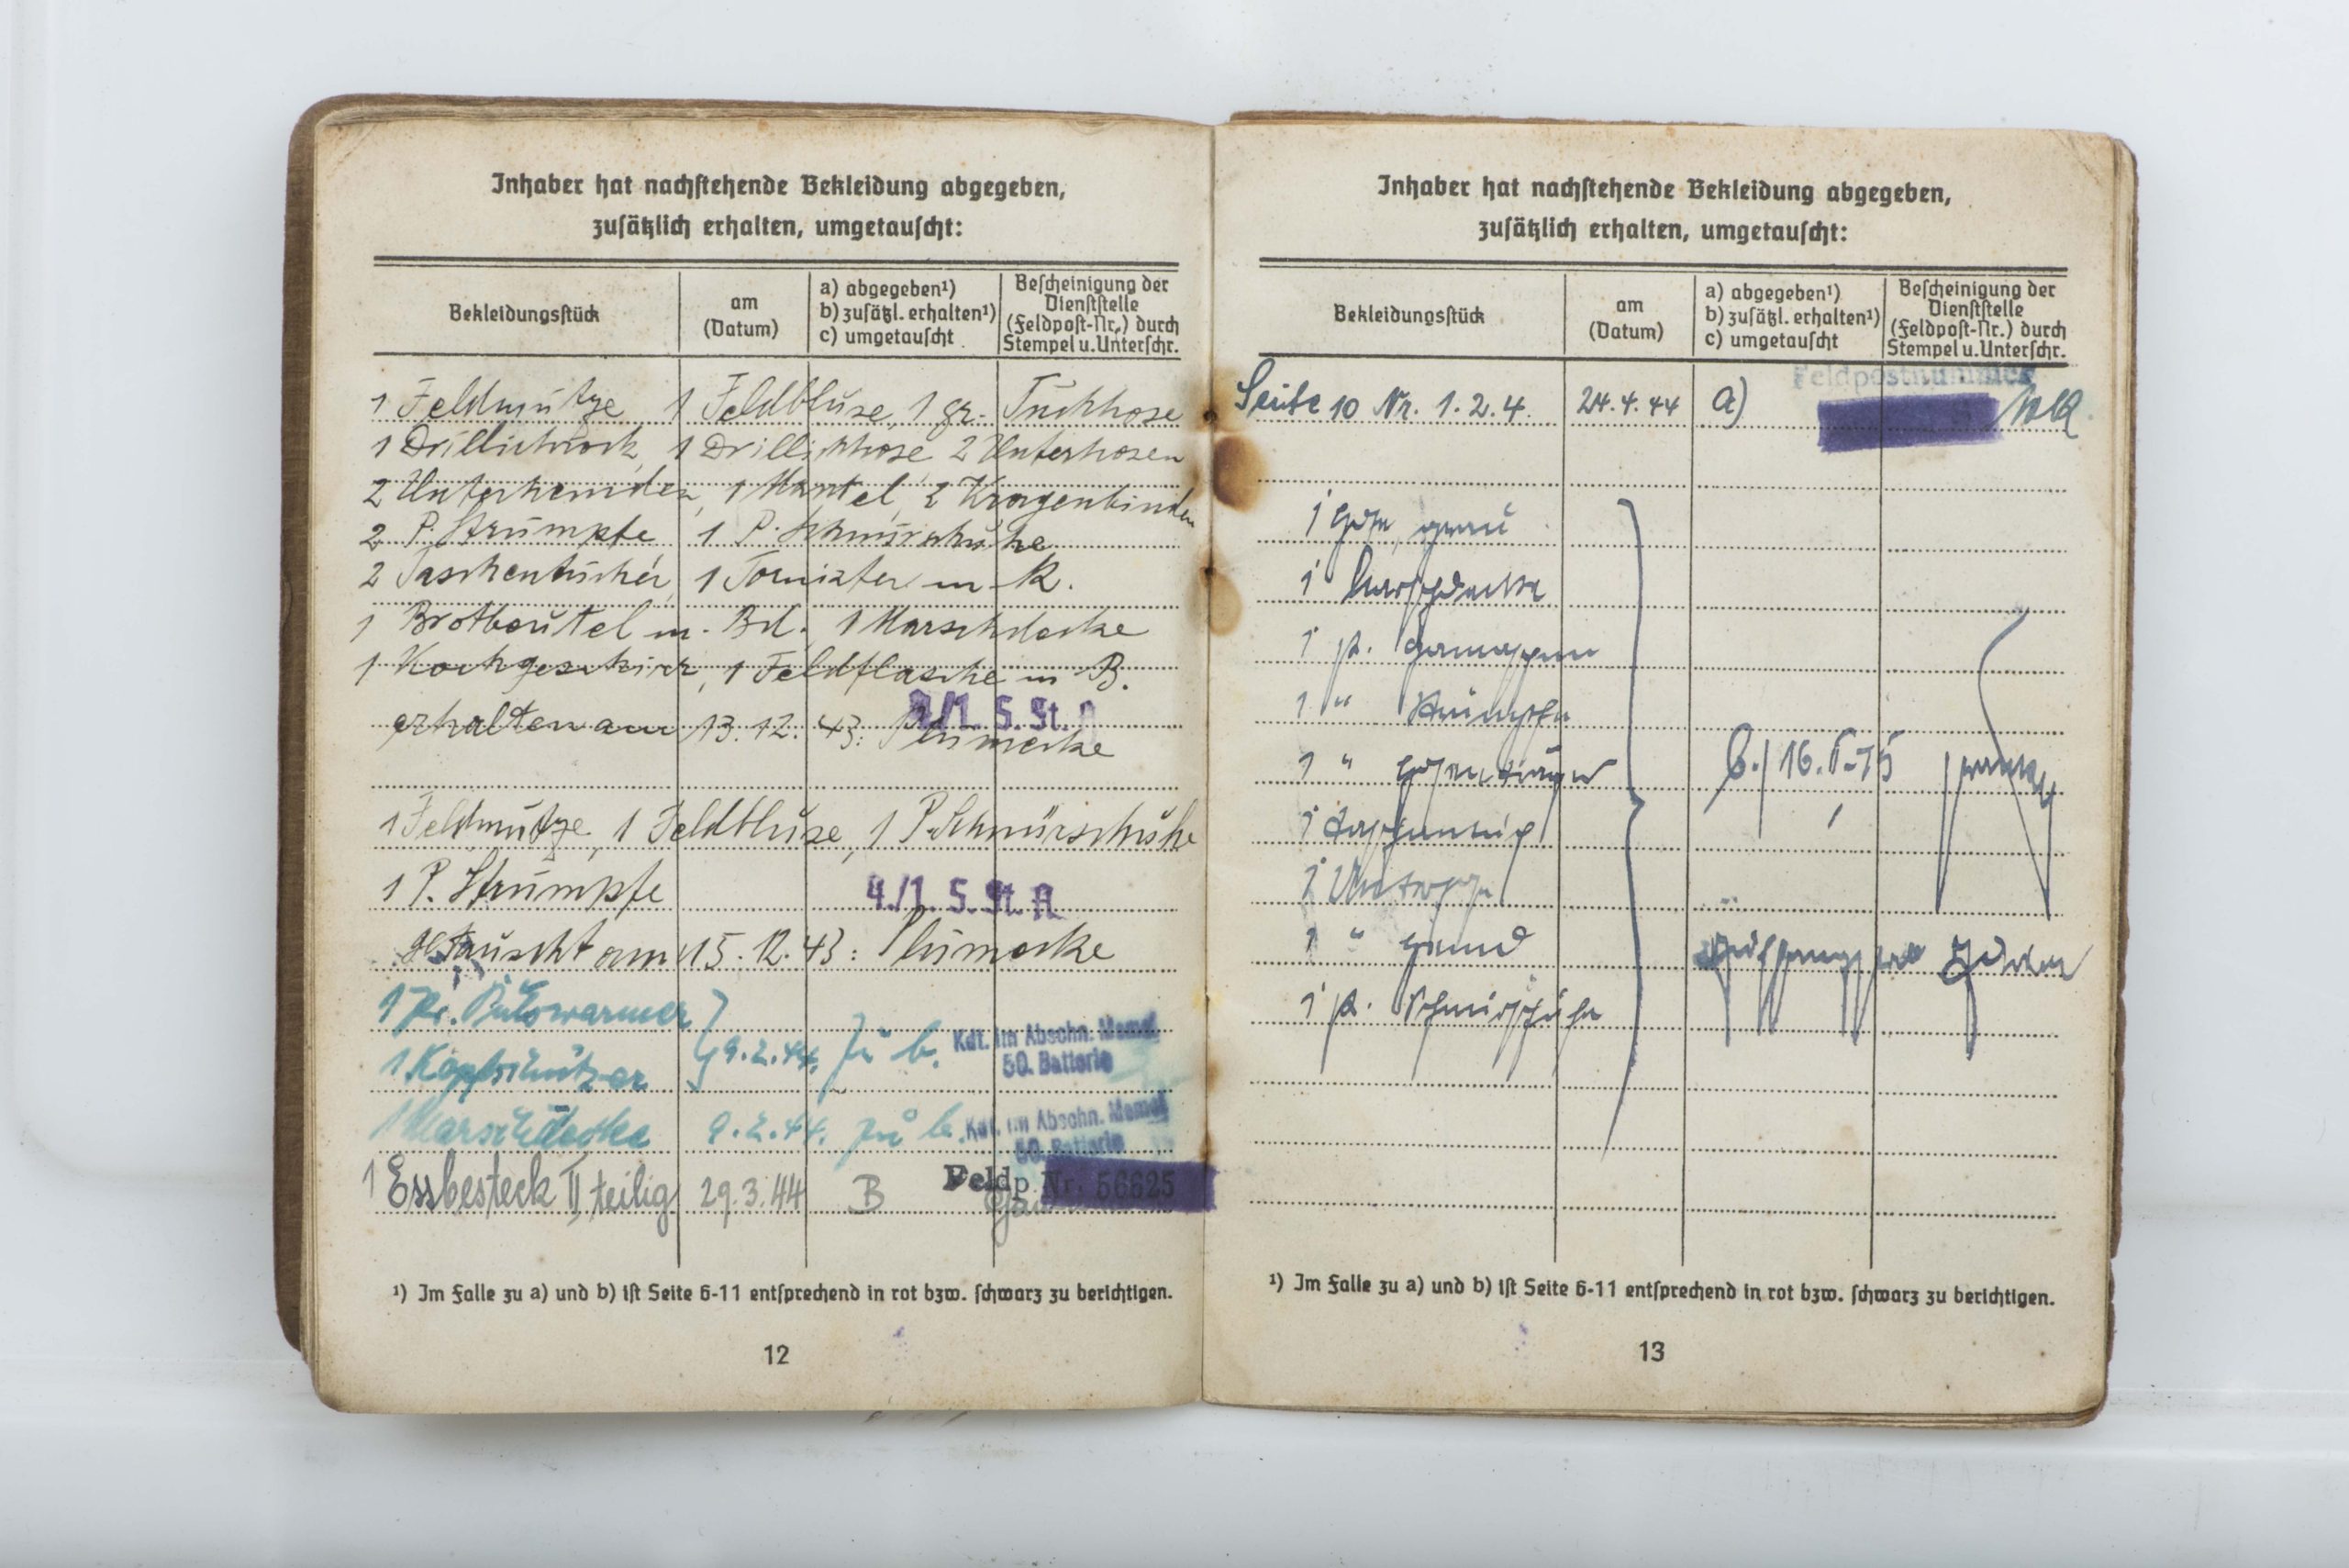 Inhaber hat nachstehende Bekleidung abgegeben,
zusätzlich erhalten, umgetauscht:
Bekleidungsstück
am
(Datum)
a) abgegeben¹)
b) zusätzl. erhalten¹)
c) umgetauscht
Bescheinigung der
Dienststelle
(Feldpost-Nr.) durch
Stempel u. Unterschr.
1 Feldmütze 1 Feldbluse, 1 gr. Tuchhose
1 Drillichrock, 1 Drillichhose 2 Unterhosen
2 Unterhemden, 1 Mantel, 2 Kragenbinden
2 P. Strümpfe, 1 P. Schnürschuhe
2 Taschentücher, 1 Tornister m R.
1 Brotbeutel m. Bd. 1 Marschdecke
1 Kochgeschirr, 1 Feldflasche m B.
St.
erhalten am 13.12.43:
1 Feldmütze, 1 Feldbluse, 1 P. Schnürschuhe
1 P. Strümpfe 4./1. S. St. A
getauscht am 15.12.43:
1 Pr. Pulswarmer
1 Kopfschützer 9.2.44. zu b. Kdt. im Abschn. Memel
50. Batterie
1 Marschdecke 9.2.44. zu b. Kdt. im Abschn. Memel
50. Batterie
1 Essbesteck II teilig 29.3.44 B Feldp Nr. 56625
¹) Im Falle zu a) und b) ist Seite 6-11 entsprechend in rot bzw. schwarz zu berichtigen.
12
Inhaber hat nachstehende Bekleidung abgegeben,
zusätzlich erhalten, umgetauscht:
Bekleidungsstück
am
(Datum)
a) abgegeben¹)
b) zusätzl. erhalten¹)
c) umgetauscht
Bescheinigung der
Dienststelle
(Feldpost-Nr.) durch
Stempel u. Unterschr.
Feldpostnummer
Seite 10 Nr. 1.2.4. 24.4.44 a)
1 Hose, grau
1 Marschdecke
1 P. Gamaschen
1 " Strümpfe
1 " Hosenträger
1 Unterhose
1 " Hemd
1 P. Schnürschuhe
¹) Im Falle zu a) und b) ist Seite 6-11 entsprechend in rot bzw. schwarz zu berichtigen.
13